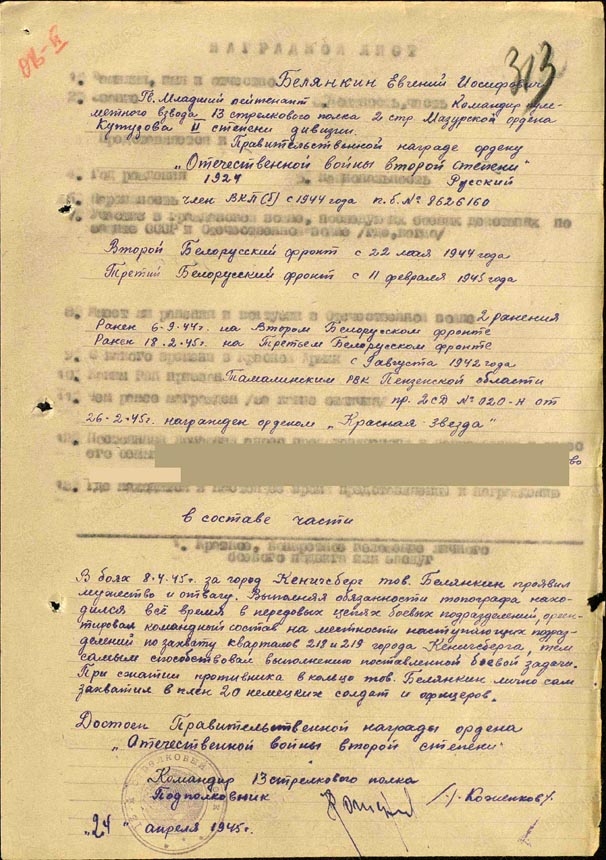 ОВ-II
313
НАГРАДНОЙ ЛИСТ
1. Фамилия, имя и отчество Белянкин Евгений Иосифович
2. Звание Гв. Младший лейтенант должность, часть Командир пуле-
метного взвода 13 стрелкового полка 2 стр Мазурской ордена
Кутузова II степени дивизии.
Представляется к Правительственной награде ордену
„Отечественной войны второй степени"
4. Год рождения 1924 5. Национальность Русский
6. Партийность член ВКП(б) с 1944 года п.б. № 8626160
7. Участие в гражданской войне, последующих боевых действиях по
защите СССР и Отечественной войне /где, когда/
Второй Белорусский фронт с 22 мая 1944 года
Третий Белорусский фронт с 11 февраля 1945 года
8. Имеет ли ранения и контузии в Отечественной войне 2 ранения
Ранен 6-9-44г. на Втором Белорусском фронте
Ранен 18-2-45г. на Третьем Белорусском фронте
9. С какого времени в Красной Армии с 9 августа 1942 года
10. Каким РВК призван Тамалинским РВК Пензенской области
11. Чем ранее награжден /за какие отличия/ пр. 2СД № 020-Н от
26-2-45г. награжден орденом „Красная Звезда"
во
13. Где находится в настоящее время представленный к награждению
в составе части
1. Краткое, конкретное изложение личного
боевого подвига или заслуг
В боях 8.4.45г. за город Кенигсберг тов. Белянкин проявил
мужество и отвагу. Выполняя обязанности топографа нахо-
дился всё время в передовых цепях боевых подразделений, ориен-
тировал командной состав на местности наступающих подраз-
делений по захвату кварталов 218 и 219 города Кенигсберга, тем
самым способствовал выполнению поставленной боевой задачи.
При сжатии противника в кольцо тов. Белянкин лично сам
захватил в плен 20 немецких солдат и офицеров.
Достоен Правительственной награды ордена
„Отечественной войны второй степени"
Командир 13 стрелкового полка
Подполковник /Коженков/.
„24" апреля 1945г.